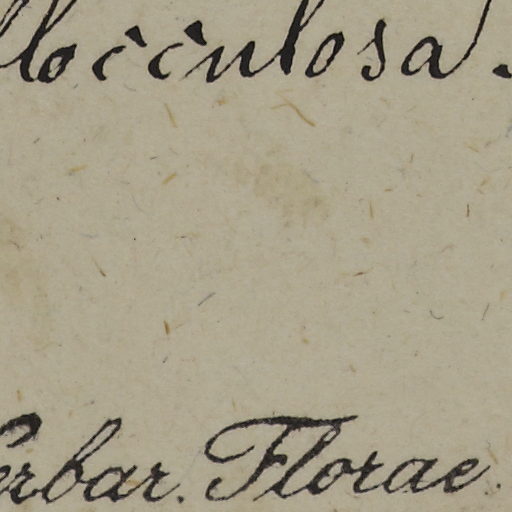 locculosa.
erbar. Florae